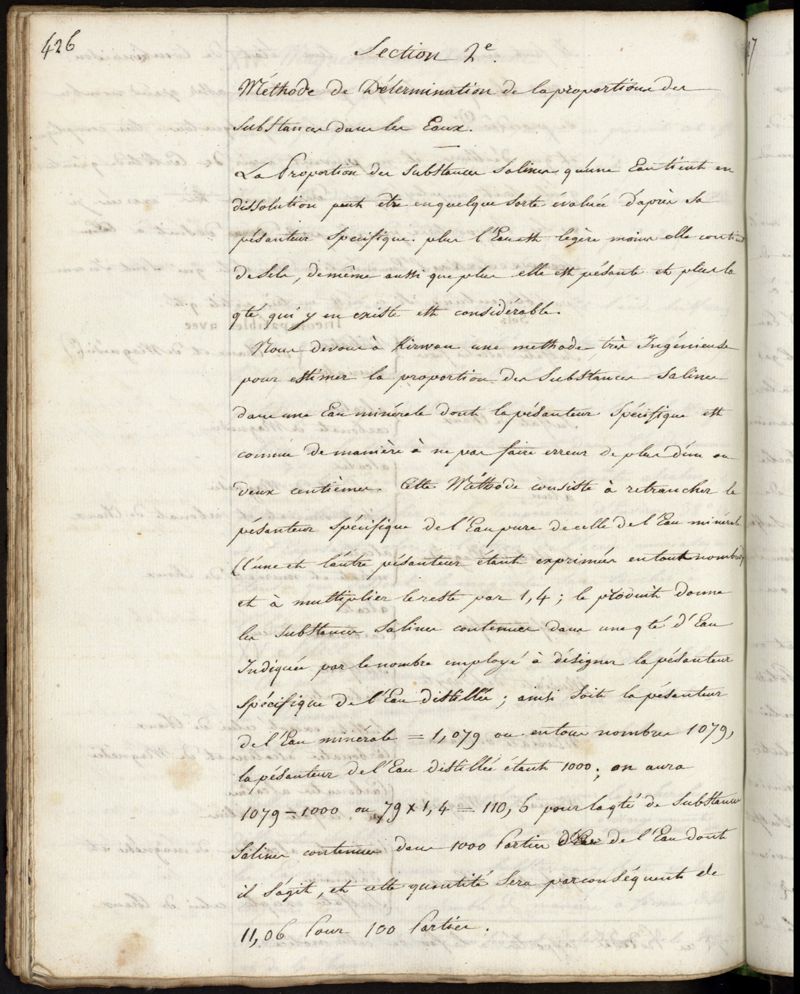 426
Section 2e.
Méthode de Détermination de la proportion des
Substances dans les Eaux.
La Proportion des Substances Salines qu'une Eau tient en
dissolution peut être en quelque sorte évaluée D'après sa
pésanteur Spécifique. plus l'Eau est legère moins elle contient
de Sels, de même aussi que plus elle est pésante et plus la
qté qui y en existe est considérable.
Nous devons à Kirwan une methode très Ingénieuse
pour estimer la proportion des Substances Salines
dans une Eau minérale dont la pésanteur Spécifique est
connue de manière à ne pas faire erreur de plus d'un ou
deux centièmes. Cette Méthode consiste à retrancher la
pésanteur Spécifique de l'Eau pure de celle de l'Eau minérale
(l'une et l'autre pésanteur étant exprimées en tout nombres)
et à multiplier le reste par 1,4; le produit donne
les Substances Salines contenues dans une qté d'Eau
Indiquée par le nombre employé à désigner la pésanteur
Spécifique de l'Eau distillée; ainsi soit la pésanteur
de l'Eau minérale = 1,079 ou en tous nombres 1079,
la pésanteur de l'Eau distillée étant 1000; on aura
1079 - 1000 ou 79 x 1,4 = 110,6 pour la qté de Substances
Salines contenues dans 1000 Parties de l'Eau dont
il s'agit, et cette quantité Sera par conséquent de
11,06 Pour 100 Parties.